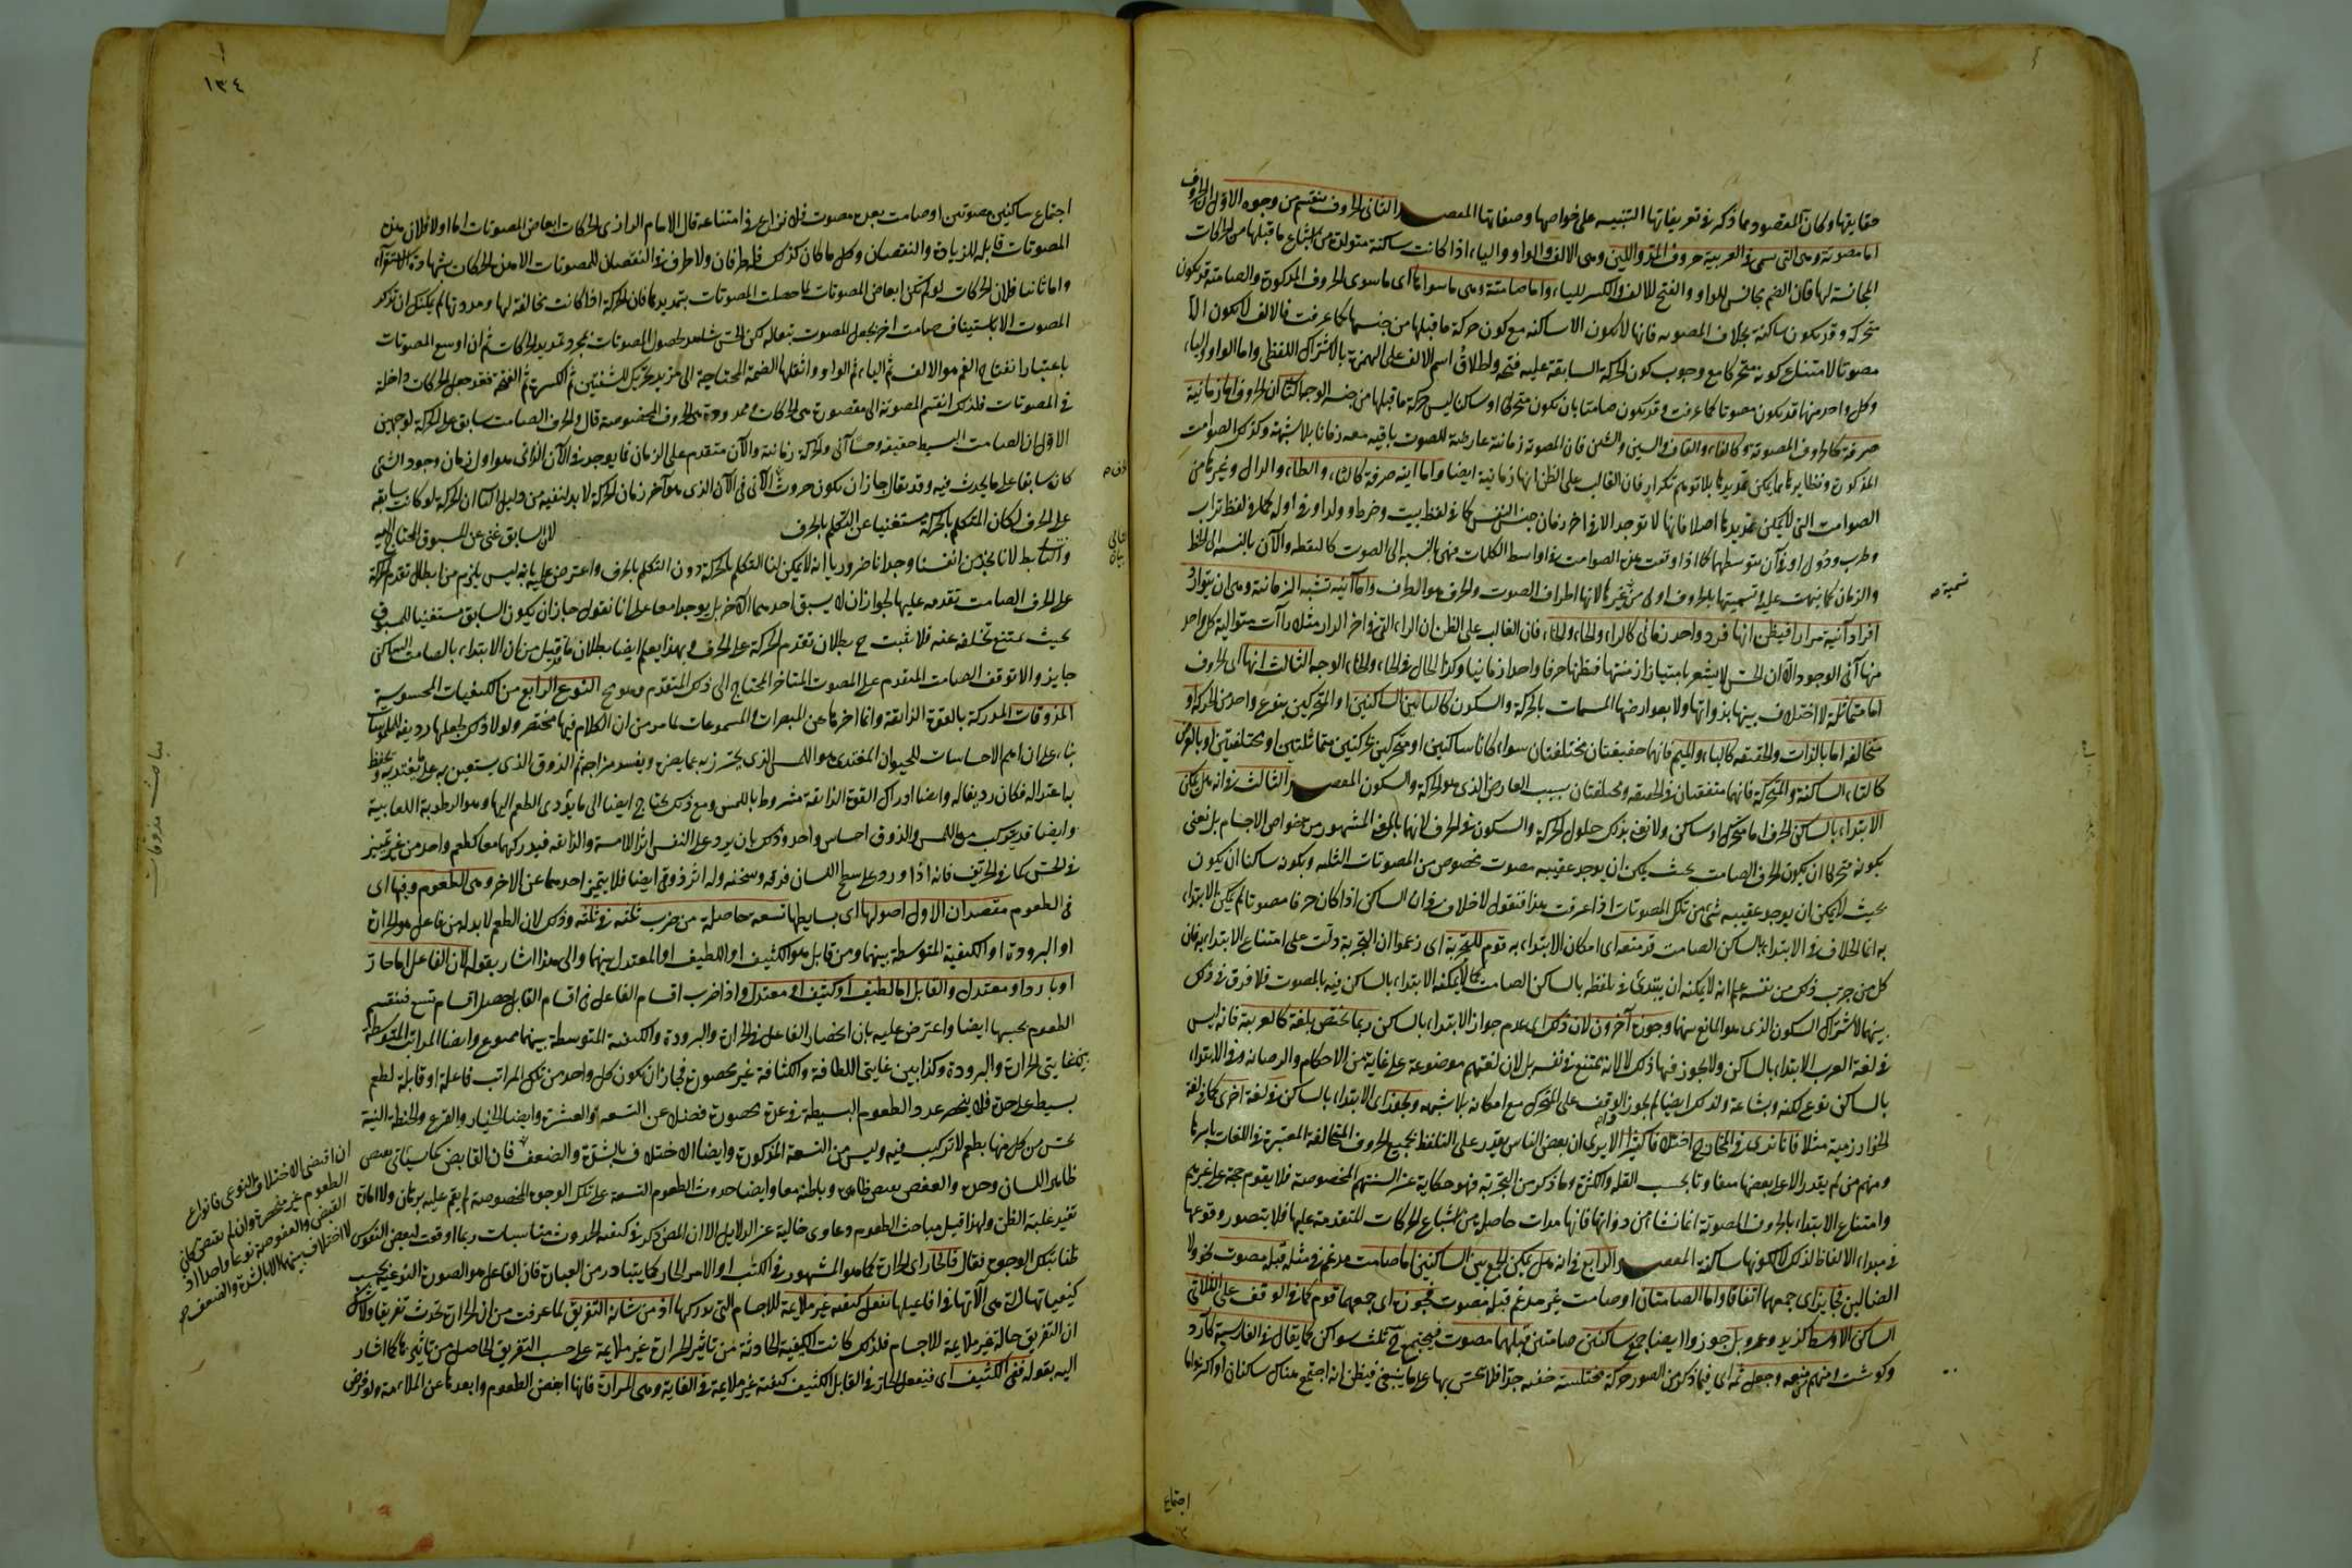 حقايقها وكان المقصود مما ذكر فى تعريفاتها التنبيه على خواصها وصفاتها المقصد الثانى الحروف تنقسم من وجوه الاول ان الحروف
اما مصوتة وهى التى تسمى فى العربية حروف المد واللين وهى الالف والواو والياء اذا كانت ساكنة متولدة من اشباع ما قبلها من الحركات
المجانسة لها فان الضم مجانس للواو والفتح للالف والكسر للياء واما صامتة وهى ما سواها اى ما سوى الحروف المذكورة والصامتة قد تكون
متحركة وقد تكون ساكنة بخلاف المصوته فانها لا تكون الا ساكنه مع كون حركة ما قبلها من جنسها كما عرفت فالالف لا يكون الا
مصوتا لامتناع كونه متحركا مع وجوب كون الحركة السابقة عليه فتحه واطلاق اسم الالف على الهمزة بالاشتراك اللفظى واما الواو والياء
وكل واحد منهما قد يكون مصوتا كما عرفت وقد يكون صامتا بان يكون متحركا او ساكنا ليس حركة ما قبلها من جنسه الوجه الثانى ان الحروف اما زمانية
صرفة كالحروف المصوتة وكالفاء والقاف والسين والشين فان المصوتة زمانية عارضة للصوت باقيه معه زمانا بلا شبهة وكذلك الصوامت
المذكورة ونظايرها مما يمكن تمديدها بلا توهم تكرار فان الغالب على الظن انها زمانية ايضا واما آنيه صرفة كالتاء والطاء والدال وغيرها من
الصوامت التى لا يمكن تمديدها اصلا فانها لا توجد الا فى اخر زمان حبس النفس كما فى لفظ بيت وفرط وولد او فى اوله كما فى لفظ تراب
وطرب ودول او فى آن يتوسطهما كما اذا وقعت هذه الصوامت فى اواسط الكلمات فهى بالنسبه الى الصوت كالنقطه والآن بالنسبه الى الخط
والزمان كما نبهت عليه وتسميتها بالحروف اولى من غيرها لانها اطراف الصوت والحرف هو الطرف واما آنيه تشبه الزمانية وهى ان تتوارد
افراد آنية مرارا فيظن انها فرد واحد زمانى كالراء والحاء والخاء فان الغالب على الظن ان الراء التى فى اخر الدار مثلا راآت متوالية كل واحد
منها آنى الوجود الا ان الحس لا يشعر بامتياز ازمنتها فيظنها حرفا واحدا زمانيا وكذا الحال فى الحاء والخاء الوجه الثالث انها اى الحروف
اما متماثلة لا اختلاف بينها بذواتها ولا بعوارضها المسماة بالحركة والسكون كالبائين الساكنين او المتحركين بنوع واحد من الحركة او
متخالفه اما بالذات والحقيقه كالباء والميم فانهما حقيقتان مختلفتان سواء كانا ساكنين او متحركين بحركتين متماثلتين او مختلفتين او بالعرض
كالباء الساكنة والمتحركة فانهما متفقتان فى الحقيقه ومختلفتان بسبب العارض الذى هو الحركة والسكون المقصد الثالث فى انه هل يمكن
الابتداء بالساكن الحرف اما متحرك او ساكن ولا نعنى بذلك حلول الحركة والسكون فى الحرف لانهما بالمعنى المشهور من خواص الاجسام بل نعنى
بكونه متحركا ان يكون الحرف الصامت بحيث يمكن ان يوجد عقيبه مصوت مخصوص من المصوتات الثلثه وبكونه ساكنا ان يكون
بحيث لا يمكن ان يوجد عقيبه شىء من تلك المصوتات اذا عرفت هذا فنقول لا خلاف فى ان الساكن اذا كان حرفا مصوتا لم يمكن الابتداء
به انما الخلاف فى الابتداء بالساكن الصامت قد منعه اى امكان الابتداء به قوم للتجربة اى زعموا ان التجربة دلت على امتناع الابتداء به فان
كل من جرب ذلك من نفسه علم انه لا يمكنه ان يبتدئ فى تلفظه بالساكن الصامت كما لا يمكنه الابتداء بالساكن فيه بالمصوت فلا فرق فى ذلك
بينهما لاشتراك السكون الذى هو المانع بينهما وجوزه آخرون لان ذلك اى عدم جواز الابتداء بالساكن ربما يختص بلغة كالعربية فانه ليس
فى لغة العرب الابتداء بالساكن ولا يجوز فيها ذلك لا لانه ممتنع فى نفسه بل لان لغتهم موضوعة على غاية من الاحكام والرصانه وفى الابتداء
بالساكن نوع لكنه وبشاعة ولذلك ايضا لم يجوز الوقف على المتحرك مع امكانه بلا شبهه ويجوز اى الابتداء بالساكن فى لغة اخرى كما فى لغة
الخوارزمية مثلا فانا نرى فى المخارج اختلافا كثيرا الا يرى ان بعض الناس يقدر على التلفظ بجميع الحروف المتخالفة المعتبرة فى اللغات باسرها
ومنهم من لم يقدر الا على بعضها متفاوتا بحسب القله والكثرة وما ذكر من التجربة فهو حكاية عن السنتهم المخصوصة فلا يقوم حجة على غيرهم
وامتناع الابتداء بالحروف المصوتة انما نشأ من ذواتها فانها مدات حاصلة من اشباع الحركات المتقدمة عليها فلا يتصور وقوعها
فى مبداء الالفاظ لذلك لا لكونها ساكنه المقصد الرابع فى انه هل يمكن الجمع بين الساكنين اما صامت مدغم فى مثله قبله مصوت نحو ولا
الضالين فجايز اى جمعهما اتفاقا واما الصامتان او صامت غير مدغم قبله مصوت فجوزه اى جمعهما قوم كما فى الوقف على الثلاثى
الساكن الاوسط كزيد وعمرو بل جوزوا ايضا جمع ساكنين صامتين قبلهما مصوت فيجتمع ح ثلث سواكن كما يقال فى الفارسية كارد
وكوشت ومنهم من منعه وجعل ثمه اى فيما ذكر من الصور حركة مختلسة خفيه جدا فلا يحس بها على ما ينبغى فيظن انه اجتمع هناك ساكنان او اكثر واما
تسمية
اجتماع
١٣٤
اجتماع ساكنين مصوتين او صامت بعده مصوت فلا نزاع فى امتناعه قال الامام الرازى الحركات ابعاض المصوتات اما اولا فلان هذه
المصوتات قابله للزيادة والنقصان وكل ما كان كذلك فله طرفان ولا طرف فى النقصان للمصوتات الا هذه الحركات بشهادة الاستقراء
واما ثانيا فلان الحركات لو لم تكن ابعاض المصوتات لما حصلت المصوتات بتمديدها فان الحركة اذا كانت مخالفة لها ومددتها لم يمكنك ان تذكر
المصوت الا باستيناف صامت اخر يجعل المصوت تبعا له لكن الحس شاهد لحصول المصوتات بمجرد تمديد الحركات ثم ان اوسع المصوتات
باعتبار انفتاح الفم هو الالف ثم الياء ثم الواو واثقلها الضمة المحتاجة الى مزيد تحريك الشفتين ثم الكسرة ثم الفتحة فقد جعل الحركات داخلة
فى المصوتات فلذلك انقسم المصوتة الى مقصورة هى الحركات وممدودة هى الحروف المخصوصة قال والحرف الصامت سابق على الحركة لوجهين
الاول ان الصامت البسيط حقيقة وحسا آنى والحركة زمانية والآن متقدم على الزمان فما يوجد فى الآن الذى هو اول زمان وجود الشئ
كان سابقا على ما يحدث فيه وقد يقال جاز ان يكون حدوث الآنى فى الآن الذى هو آخر زمان الحركة لا بد لنفيه من دليل الثانى ان الحركة لو كانت سابقه
على الحرف لكان المتكلم بالحركة مستغنيا عن التكلم بالحرف لان السابق غنى عن المسبوق المحتاج اليه
والتالى باطل لانا نجد من انفسنا وجدانا ضروريا انه لا يمكن لنا التكلم بالحركة دون التكلم بالحرف واعترض عليه بانه ليس يلزم من ابطال تقدم الحركة
على الحرف الصامت تقدمه عليها لجواز ان لا يسبق احدهما الاخر بل يوجدا معا على انا نقول جاز ان يكون السابق مستغنيا للمسبوق
بحيث يمتنع تخلفه عنه فلا يثبت ح بطلان تقدم الحركة على الحرف وبهذا يعلم ايضا بطلان ما قيل من ان الابتداء بالصامت الساكن
جايز والا توقف الصامت المتقدم على المصوت المتاخر المحتاج الى ذلك المتقدم وهو مح النوع الرابع من الكيفيات المحسوسة
المذوقات المدركة بالقوة الذائقة وانما اخرها عن المبصرات والمسموعات لما مر من ان الكلام فيها مختصر ولولا ذلك لجعلها رديفة للملموسات
بناء على ان اهم الاحساسات للحيوان المغتذى هو اللمس الذى يحترز به عما يضره ويفسد مزاجه ثم الذوق الذى يستعين به على ما يغتذى به ويحفظ
به اعتداله فكان رديفا له وايضا ادراك القوة الذائقة مشروط باللمس ومع ذلك يحتاج ايضا الى ما يؤدى الطعم اليها وهو الرطوبة اللعابية
وايضا قد يتركب من اللمس والذوق احساس واحد وذلك بان يرد على النفس اثر اللامسة والذائقه فيدركهما معا كطعم واحد من غير تمييز
فى الحس كما فى الحريف فانه اذا ورد على سطح اللسان فرقه وسخنه وله اثر ذوقى ايضا فلا يتميز احدهما عن الاخر وهى الطعوم وفيها اى
فى الطعوم مقصدان الاول اصولها اى بسايطها تسعه حاصلة من ضرب ثلثه فى ثلثه وذلك لان الطعم لا بد له من فاعل هو الحرارة
او البرودة او الكيفية المتوسطة بينهما ومن قابل هو الكثيف او اللطيف او المعتدل بينهما والى هذا اشار بقوله لان الفاعل اما حار
او بارد او معتدل والقابل اما لطيف او كثيف او معتدل واذا ضرب اقسام الفاعل فى اقسام القابل حصل اقسام تسع فينقسم
الطعوم بحسبها ايضا واعترض عليه بان انحصار الفاعل فى الحرارة والبرودة والكيفية المتوسطة بينهما ممنوع وايضا المراتب المتوسطة
بين غايتى الحرارة والبرودة وكذا بين غايتى اللطافة والكثافة غير محصورة فجاز ان يكون كل واحد من تلك المراتب فاعلة او قابلة لطعم
بسيط على حدة فلا ينحصر عدد الطعوم البسيطة فى عدة محصورة فضلا عن التسعه او العشرة وايضا الخيار والقرع والحنطة النية
يحس من كل منها بطعم لا تركيب فيه وليس من التسعة المذكورة وايضا الاختلاف بالشدة والضعف فان القابض كما سيأتى يقبض
ظاهر اللسان وحده والعفص يقبض ظاهره وباطنه معا وايضا حدوث الطعوم التسعة على تلك الوجوه المخصوصة لم يقم عليه برهان ولا امارة
تفيد غلبة الظن ولهذا قيل مباحث الطعوم دعاوى خالية عن الدلايل الا ان المص ذكر فى كيفية الحدوث مناسبات ربما اوقعت لبعض النفوس
ظنا بتلك الوجوه فقال فالحار اى الحرارة كما هو المشهور فى الكتب او الامر الحار كما يتبادر من العبارة فان الفاعل هو الصورة النوعية بحسب
كيفياتها التى هى الآتها فى افاعيلها يفعل كيفيه غير ملايمة للاجسام التى يدركها اذ من شانه التفريق لما عرفت من ان الحرارة تحدث تفريقا ولا شك
ان التفريق حالة غير ملايمة للاجسام فلذلك كانت الكيفية الحادثة من تاثير الحرارة غير ملايمة على حسب التفريق الحاصل من تاثيرها كما اشار
اليه بقوله ففى الكثيف اى فيفعل الحار فى القابل الكثيف كيفية غير ملايمة فى الغاية وهى المرارة فانها ابغض الطعوم وابعدها عن الملايمة ولو فرض
ان اقتضى الاختلاف النوعى فانواع
الطعوم غير منحصرة وان لم يقتض كان
القبض والعفوصة نوعا واحدا اذ
لا اختلاف بينهما الا بالشدة والضعف
مباحث مذوقات